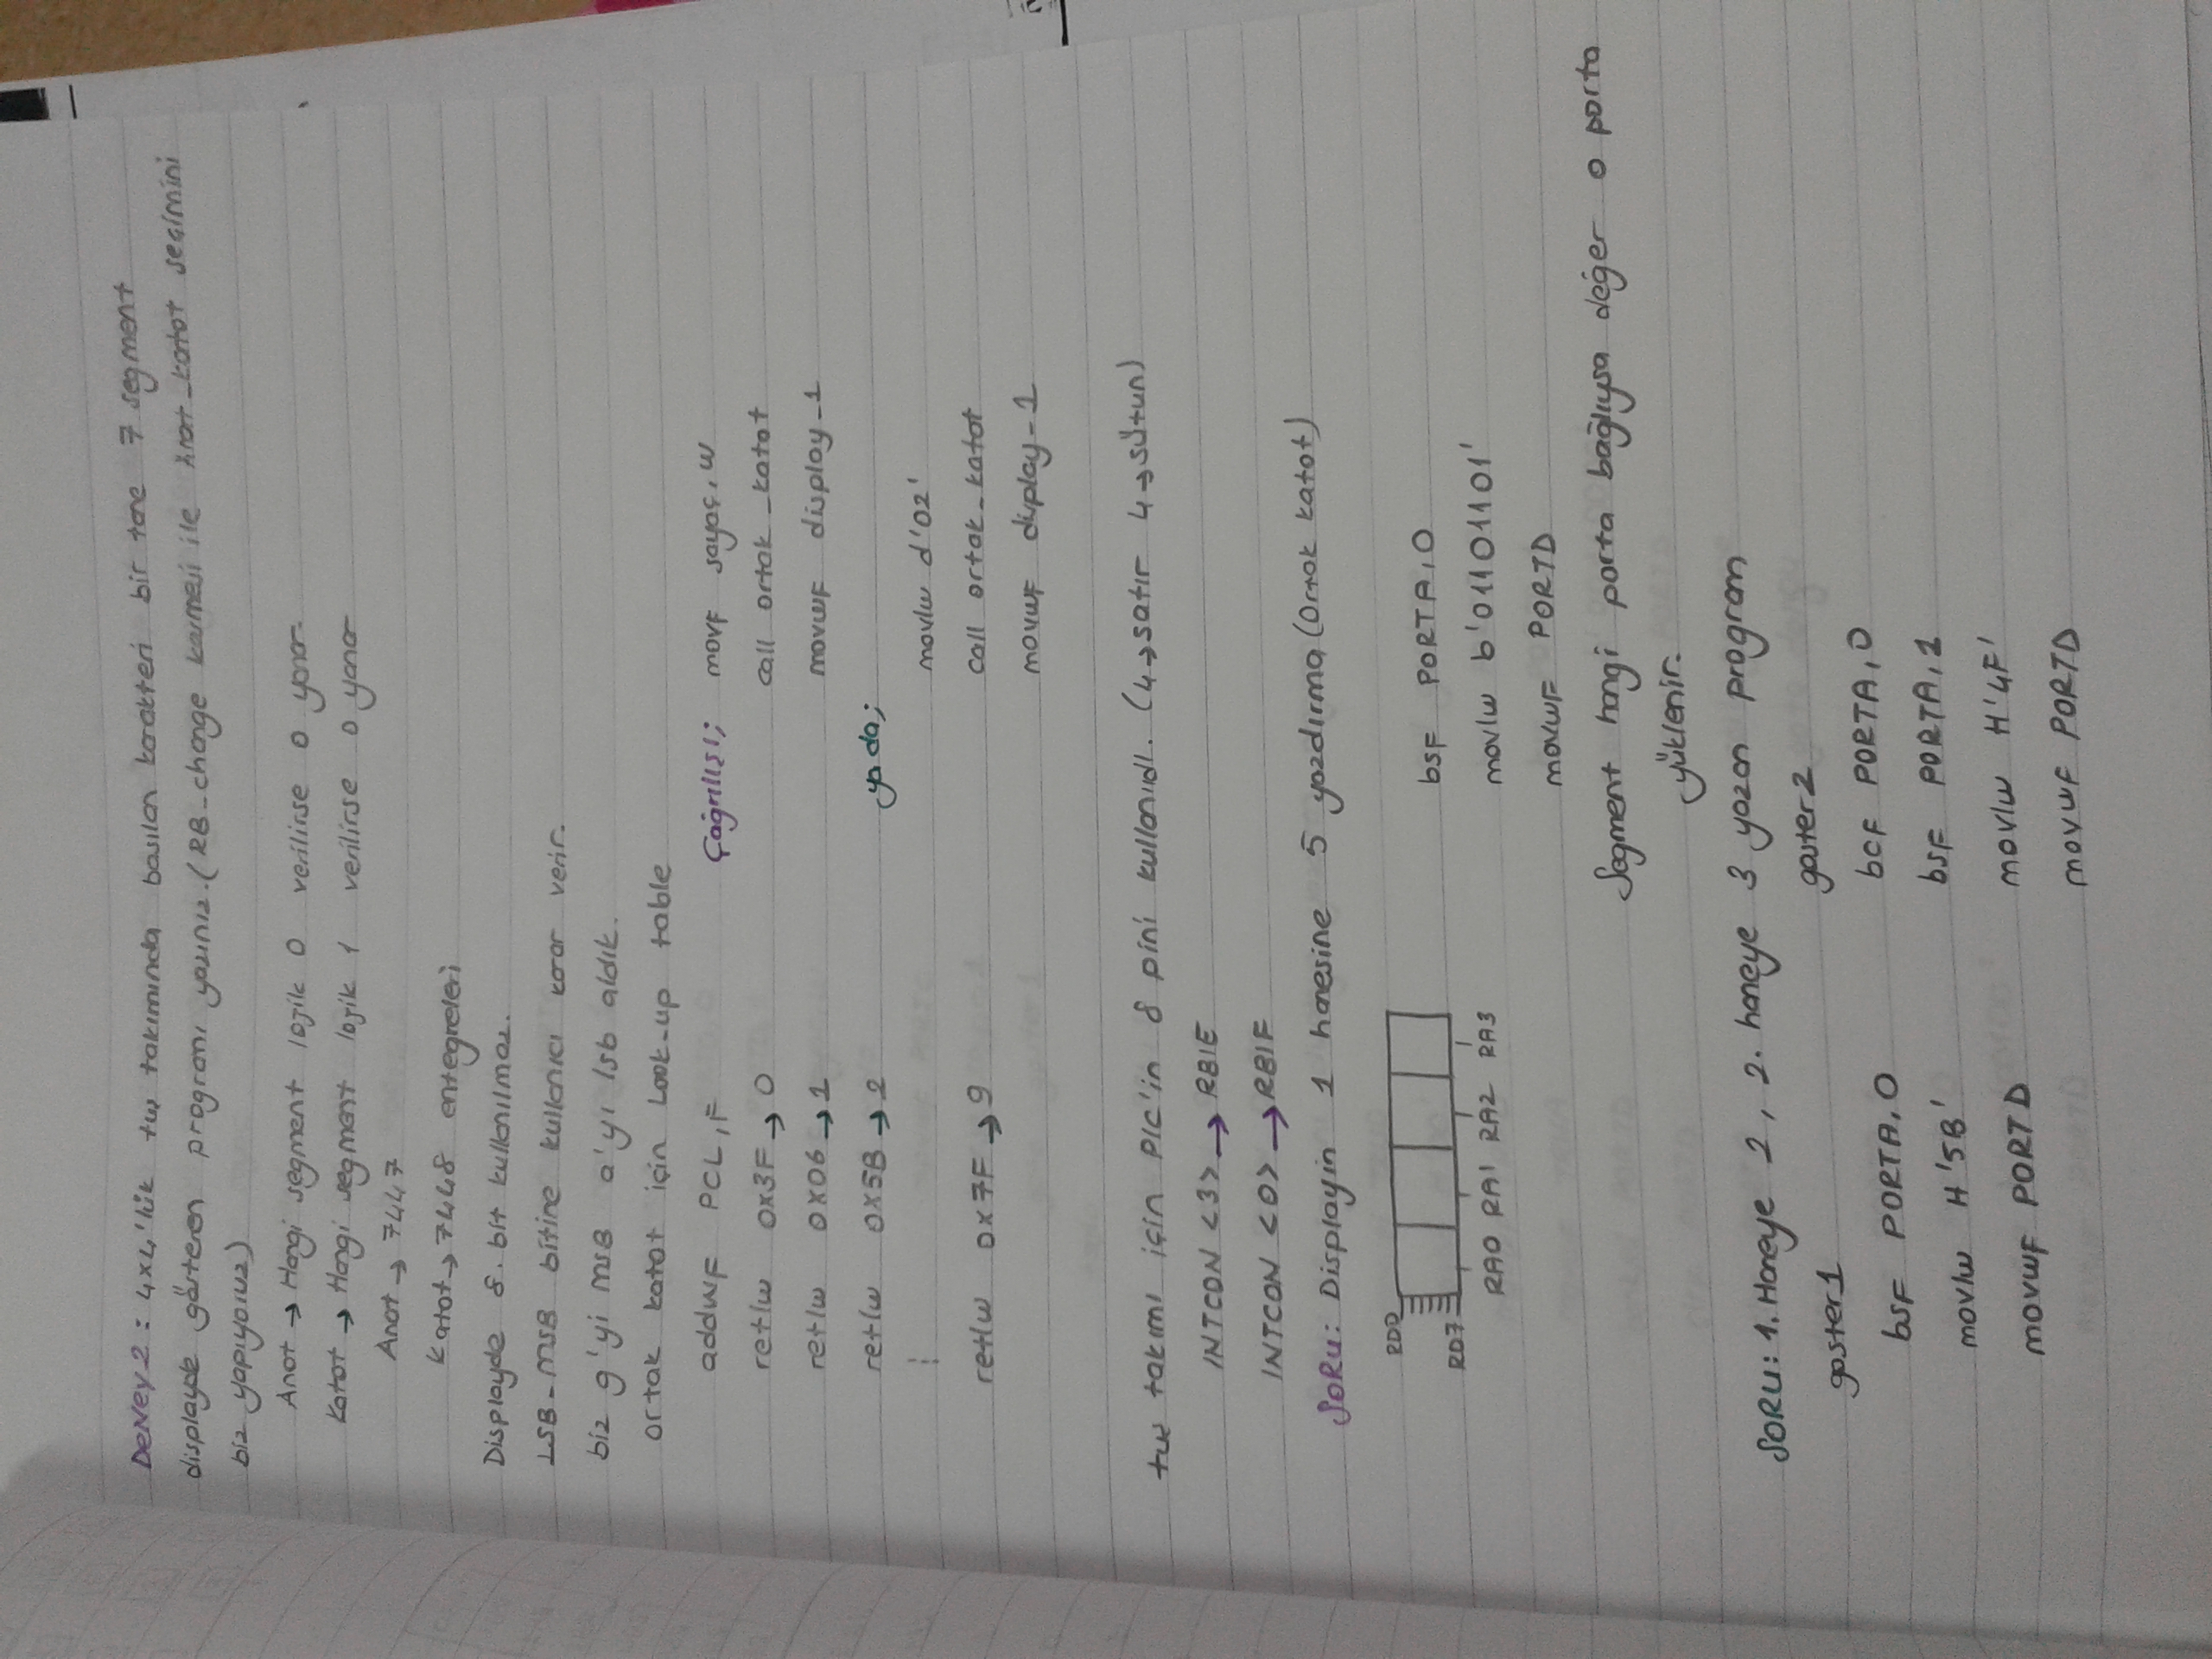 DeNey 2 : 4x4'lük tuş takımında basılan karakteri bir tane 7 segment
displayde gösteren programı yazınız. (RB_change kesmesi ile Anot_katot seçimini
biz yapıyoruz)
Anot → Hangi segment lojik 0 verilirse o yanar.
Katot → Hangi segment lojik 1 verilirse o yanar
Anot → 7447
Katot → 7448 entegreleri
Displayde 8. bit kullanılmaz.
LSB-MSB bitine kullanıcı karar verir.
biz g'yi MSB a'yı lsb aldık.
ortak katot için Look-up table
addwF PCL,F
retlw 0x3F → 0
retlw 0x06 → 1
retlw 0x5B → 2
⋮
retlw 0x7F → 9
Çağrılışı; movf sayaç,w
call ortak_katot
movwf display-1
ya da;
movlw d'02'
call ortak_katot
movwf display-1
tuş takımı için PIC'in 8 pini kullanıldı. (4→satır 4→sütun)
INTCON <3> → RBIE
INTCON <0> → RBIF
SoRu: Displayin 1 hanesine 5 yazdırma (Ortak katot)
RD0
RD7
RA0 RA1 RA2 RA3
bsF PORTA,0
movlw b'01101101'
movwF PORTD
Segment hangi porta bağlıysa değer o porta
yüklenir.
SORU: 1. Haneye 2, 2. haneye 3 yazan program
goster1
bsF PORTA,0
movlw H'5B'
movwF PORTD
goster2
bcF PORTA,0
bsF PORTA,1
movlw H'4F'
movwF PORTD